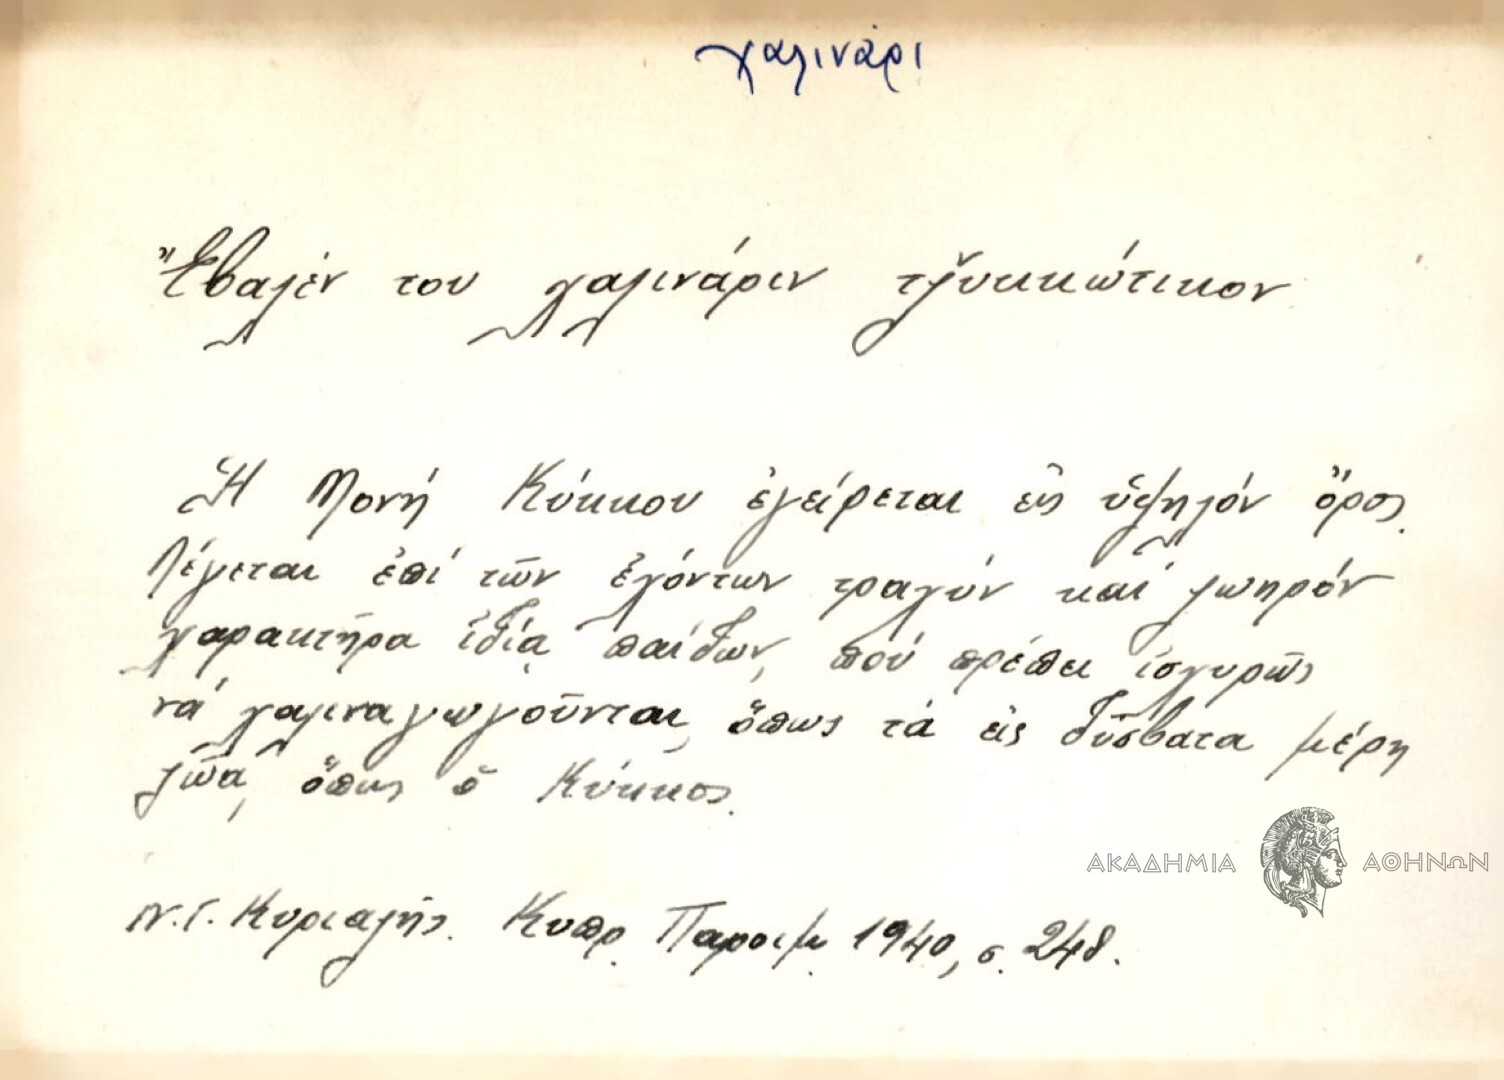 χαλινάρι
Ἔβαλέν του χαλινάριν τζ̌υκκώτικον
Ἡ Μονή Κύκκου ἐγείρεται εἰς ὑψηλόν ὄρος.
Λέγεται ἐπί τῶν ἐχόντων τραχύν καί ζωηρόν
χαρακτῆρα ἰδίᾳ παίδων, πού πρέπει ἰσχυρῶς
νά χαλιναγωγοῦνται, ὅπως τά εἰς δύσβατα μέρη
ζῶα, ὅπως ὁ Κύκκος.
Ν. Γ. Κυριαζῆς. Κυπρ. Παροιμ. 1940, σ. 248.
ΑΚΑΔΗΜΙΑ ΑΘΗΝΩΝ